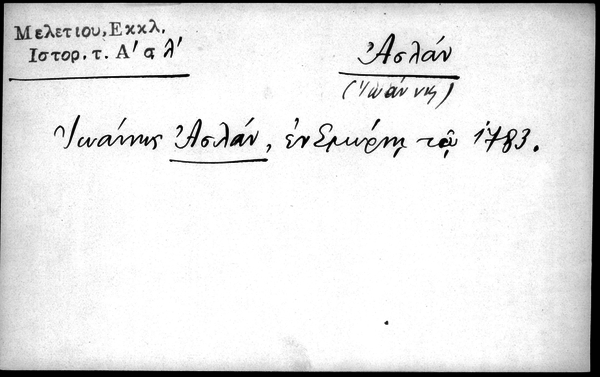 Μελετίου, Εκκλ.
Ιστορ. τ. Α' σ λ'
Ἀσλάν
(Ἰωάννης)
Ἰωάννης Ἀσλάν, ἐν Σμύρνῃ τῷ 1783.